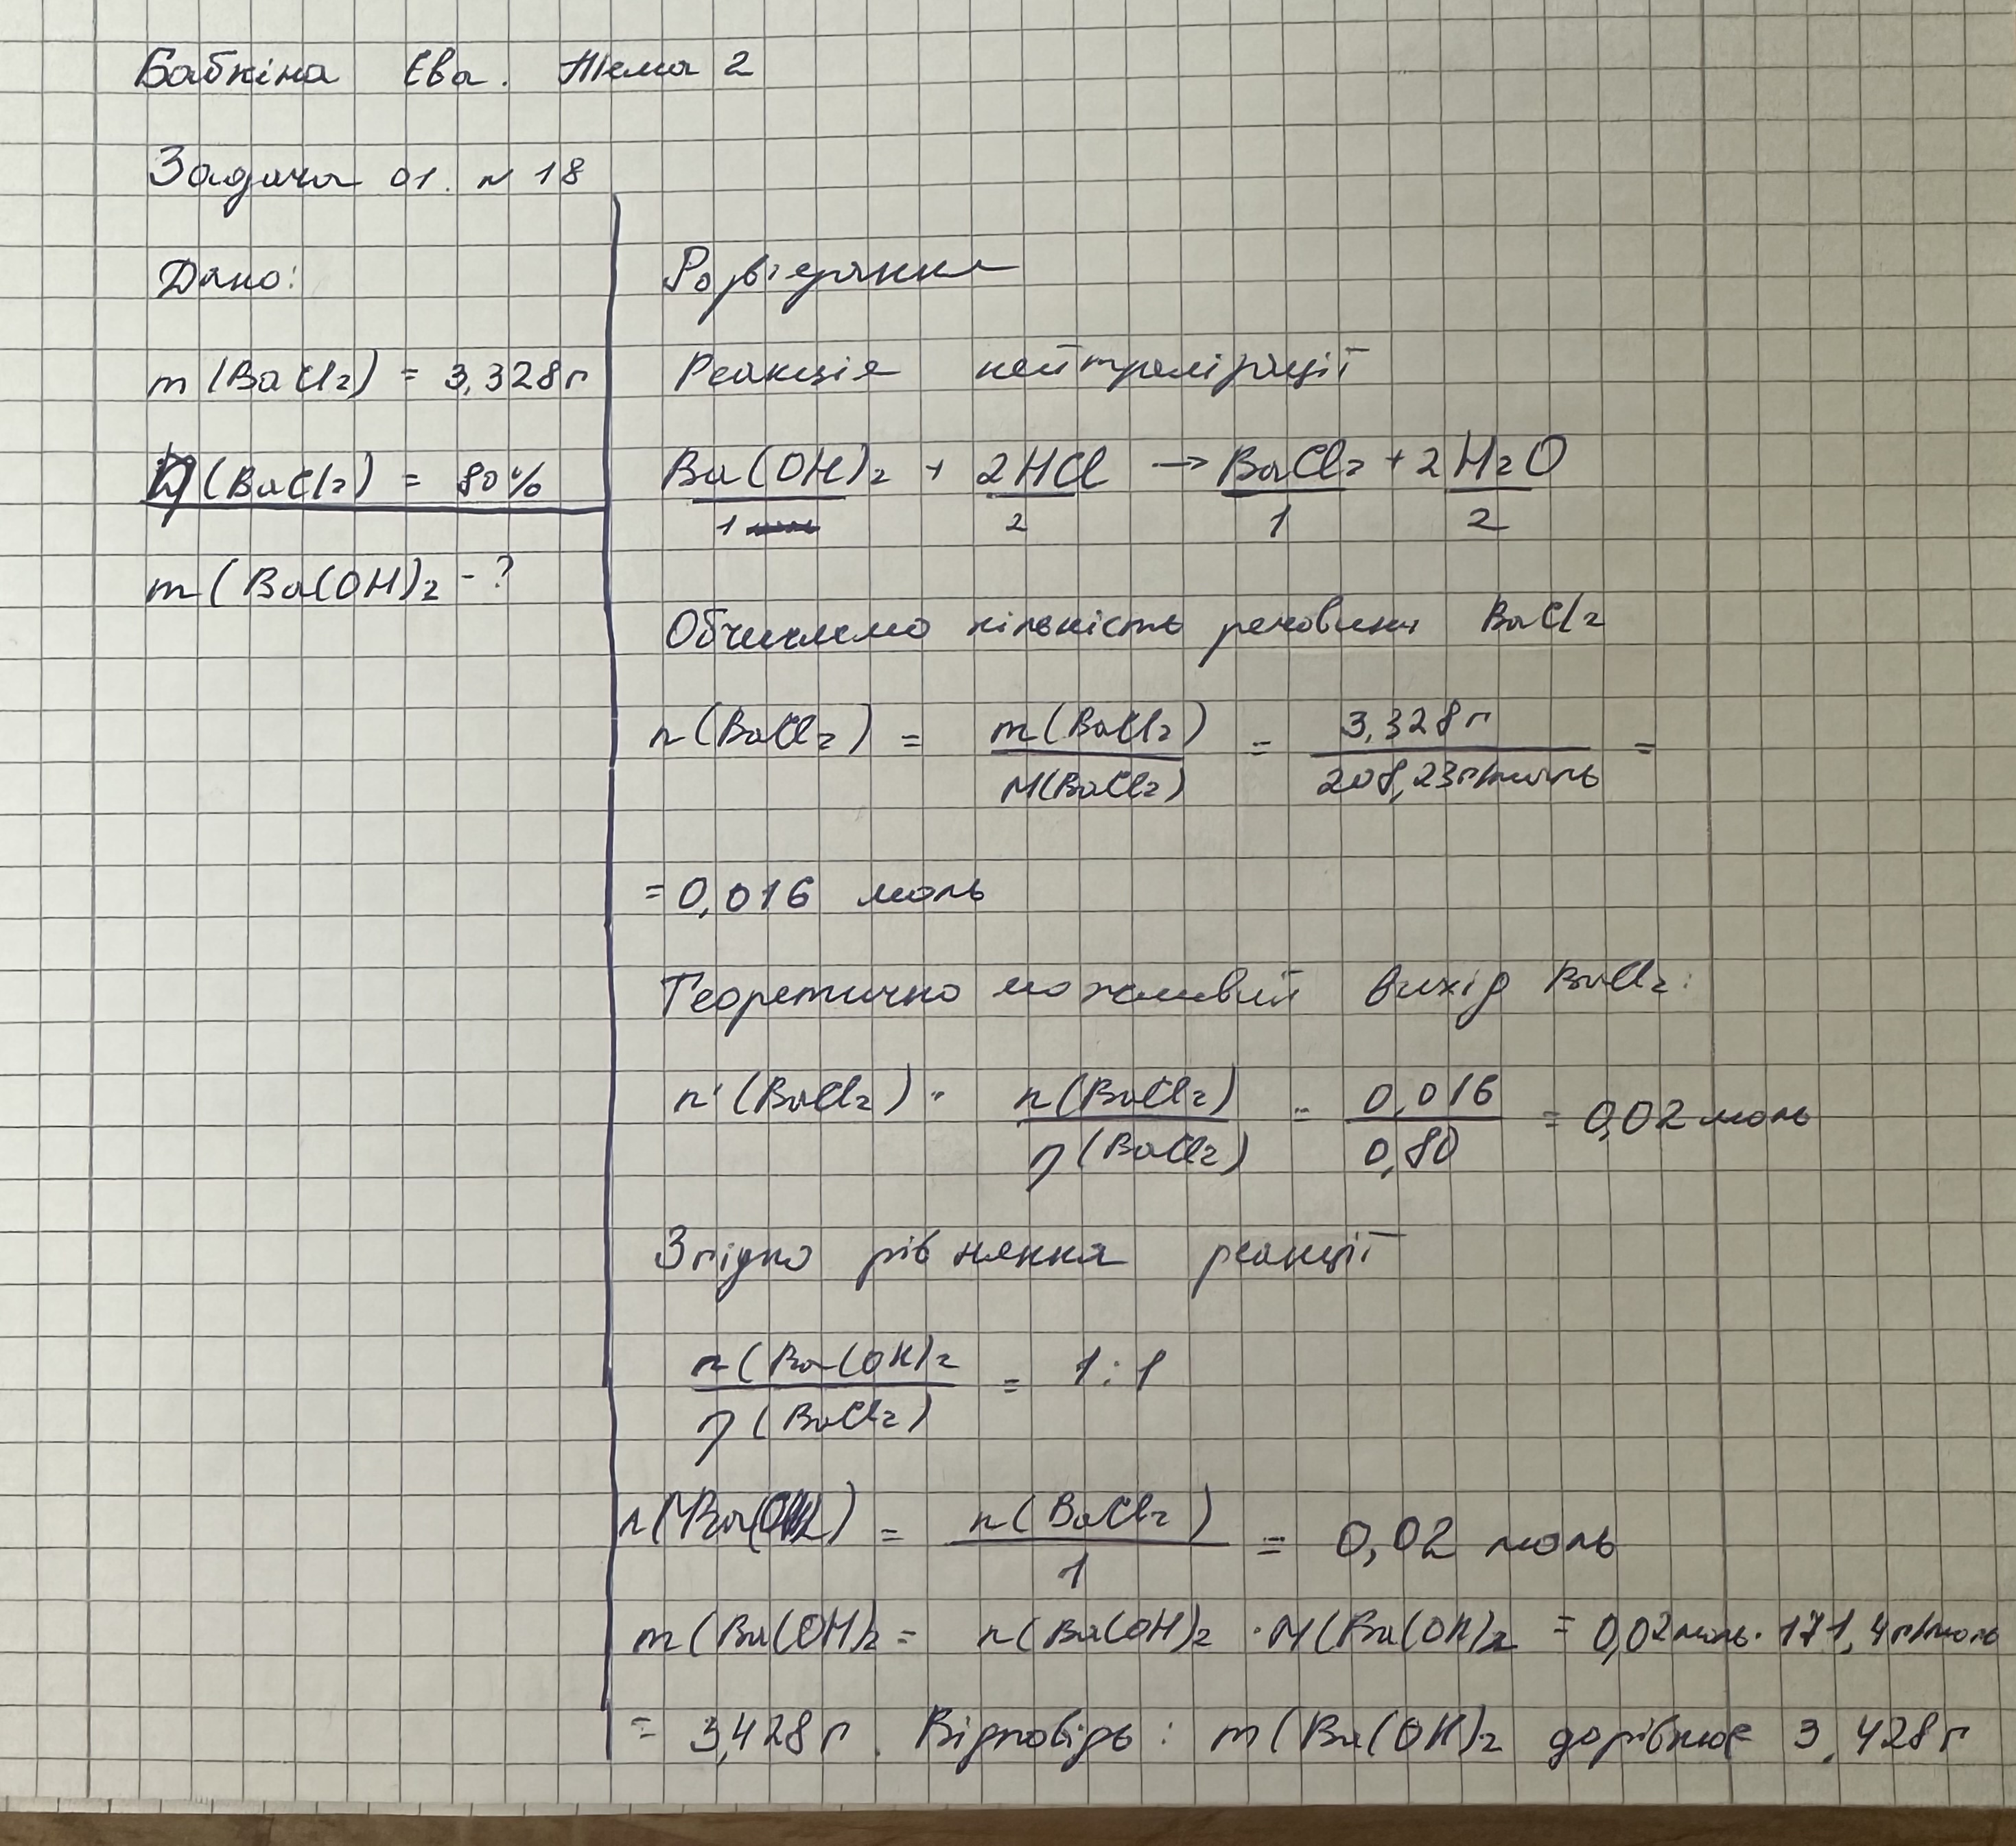 Бабкіна Єва. Тема 2
Задача 01. N 18
Дано:
m(BaCl2) = 3,328г
η(BaCl2) = 80%
m(Ba(OH)2 - ?
Розв'язання
Реакція нейтралізації
Ba(OH)2 + 2HCl → BaCl2 + 2H2O
1 2 1 2
Обчислимо кількість речовини BaCl2
n(BaCl2) = m(BaCl2) / M(BaCl2) = 3,328г / 208,23г/моль =
= 0,016 моль
Теоретично можливий вихід BaCl2:
n'(BaCl2) = n(BaCl2) / η(BaCl2) = 0,016 / 0,80 = 0,02 моль
Згідно рівняння реакції
n(Ba(OH)2 / η(BaCl2) = 1:1
n(Ba(OH)2) = n(BaCl2) / 1 = 0,02 моль
m(Ba(OH)2 = n(Ba(OH)2 · M(Ba(OH)2 = 0,02моль · 171,4г/моль
= 3,428г. Відповідь: m(Ba(OH)2 дорівнює 3,428г